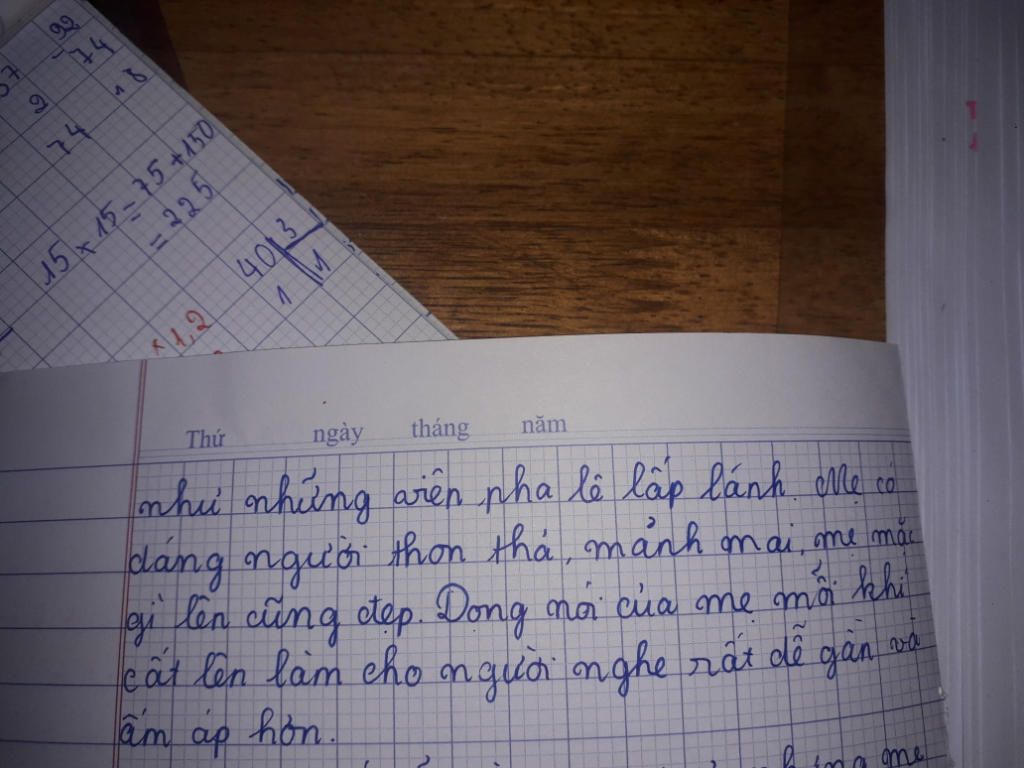 92
74
18
37
2
74
15 × 15 = 75 + 150
= 225
40 3
1 1
× 1,2
Thứ ngày tháng năm
như những viên pha lê lấp lánh. Mẹ có
dáng người thon thả, mảnh mai, mẹ mặc
gì lên cũng đẹp. Dọng nói của mẹ mỗi khi
cất lên làm cho người nghe rất dễ gần và
ấm áp hơn.
mẹ